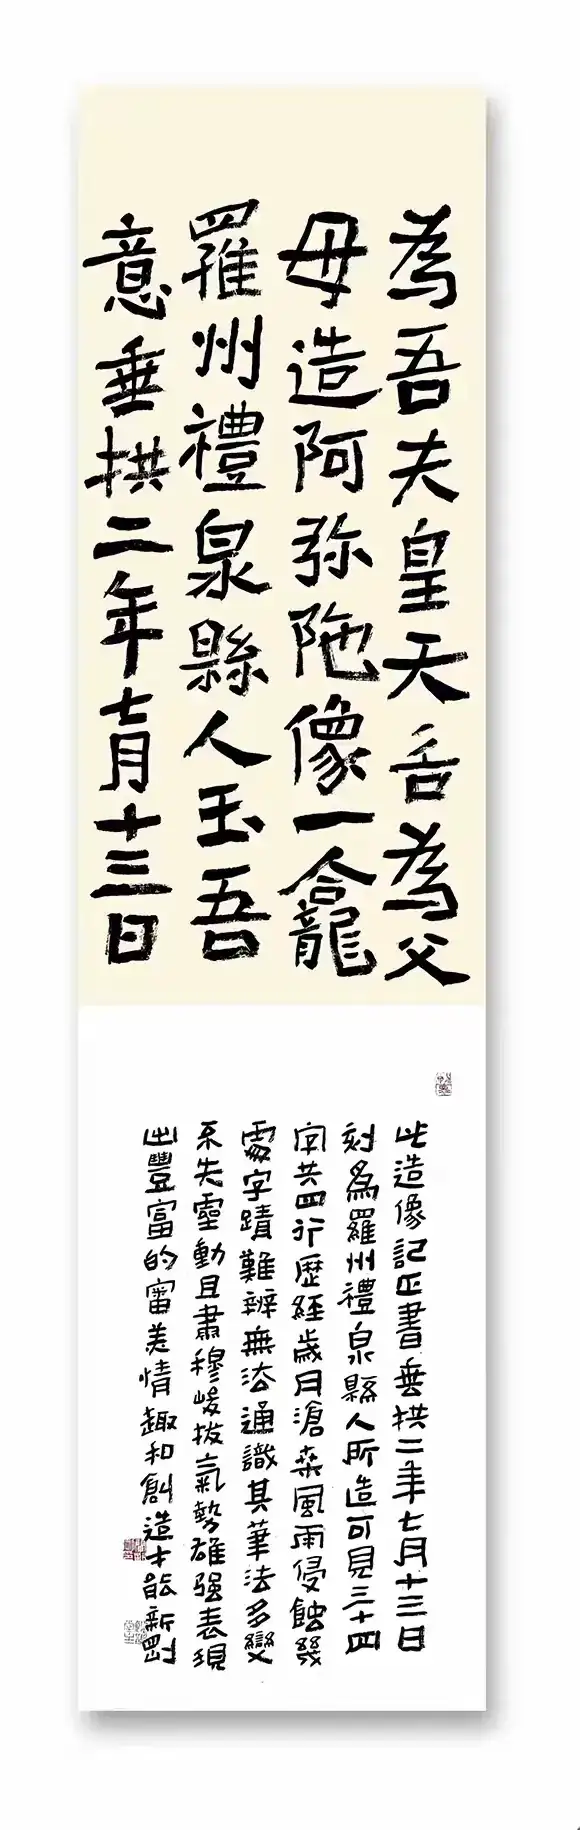 為吾夫皇天吾為父
母造阿弥陁像一龕
羅州禮泉縣人玉吾
意垂拱二年七月十三日
此造像記正書垂拱二年七月十三日
刻為羅州禮泉縣人所造可見三十四
字共四行歷經歲月滄桒風雨侵蝕幾
處字蹟難辨無法通識其筆法多變
不失靈動且肅穆峻拔氣勢雄强表現
出豐富的審美情趣和創造才能新